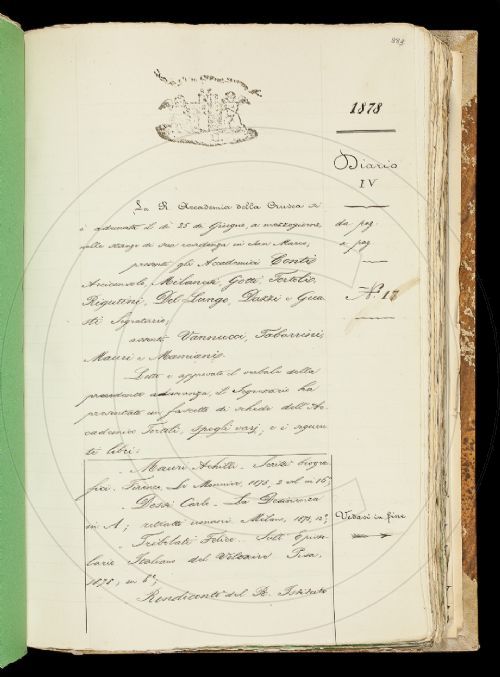 883
1878
Diario
IV
da pag.
a pag.
N. 13
La R. Accademia della Crusca si
è adunata il dì 25 di Giugno, a mezzogiorno,
nelle stanze di sua residenza in San Marco,
presenti gli Accademici Conti
Arciconsolo, Milanesi, Gotti, Tortoli,
Rigutini, Del Lungo, Dazzi e Gua-
sti Segretario;
assenti Vannucci, Tabarrini,
Mauri e Mamiani.
Letto e approvato il verbale della
precedente adunanza, il Segretario ha
presentato un fascetto di schede dell'Ac-
cademico Tortoli, spogli varj, e i seguen-
ti libri:
Mauri Achille. Scritti biogra-
fici. Firenze, Le Monnier, 1878, 2 vol. in 16°;
Dossi Carlo. La Desinenza
in A; ritratti umani. Milano, 1878, 12°;
Tribolati Felice. Sull' Episto-
lario Italiano del Voltaire. Pisa,
1878, in 8°;
Rendiconti del R. Istituto
Vedasi in fine